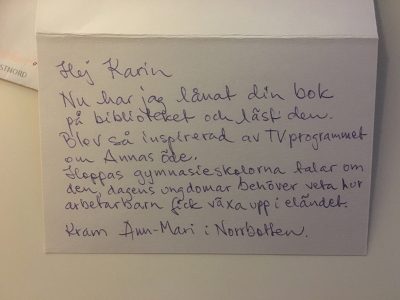 STNORD
Hej Karin
Nu har jag lånat din bok
på biblioteket och läst den.
Blev så inspirerad av TVprogrammet
om Annas öde.
Hoppas gymnasieskolorna talar om
den, dagens ungdomar behöver veta hur
arbetarbarn fick växa upp i eländet.
Kram Ann-Mari i Norrbotten.